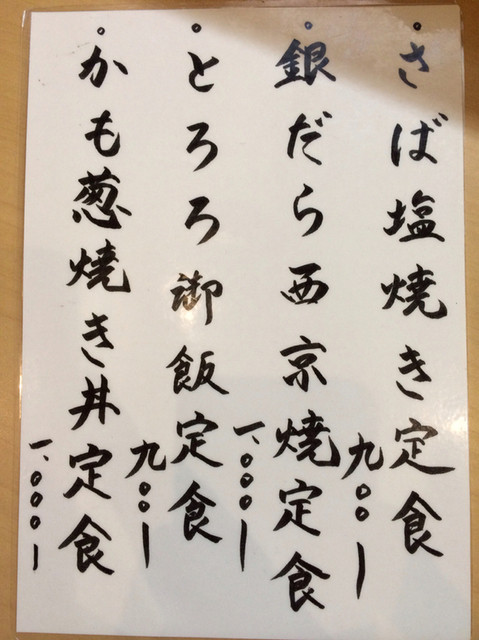 。さば塩焼き定食
九〇〇ー
。銀だら西京焼定食
一、〇〇〇ー
。とろろ御飯定食
九〇〇ー
。かも葱焼き丼定食
一、〇〇〇ー